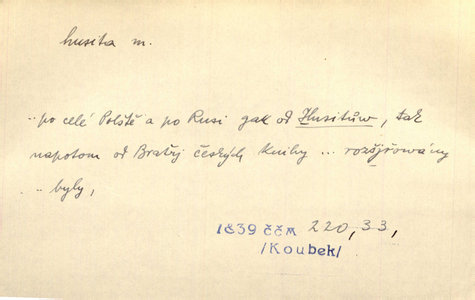 husita m.
.. po celé Polště a po Rusi gak od Husitůw, tak
napotom od Bratřj českých knihy ... rozšjřowány
... byly,
1839 ččm 220, 33,
/Koubek/